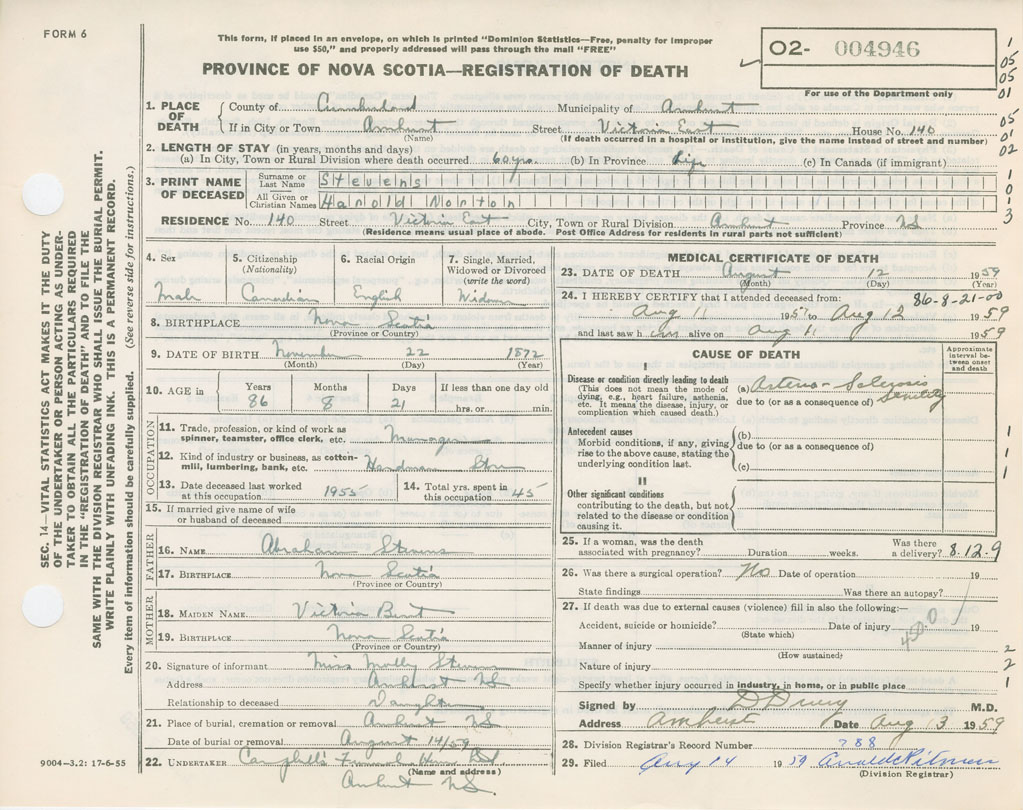 FORM 6
This form, if placed in an envelope, on which is printed "Dominion Statistics—Free, penalty for improper
use $50," and properly addressed will pass through the mail "FREE"
PROVINCE OF NOVA SCOTIA—REGISTRATION OF DEATH
O2- 004946
For use of the Department only
1 05 05 01 05 01 02 1 0 1 3
1. PLACE OF DEATH { County of Cumberland Municipality of Amherst
If in City or Town Amherst Street Victoria East House No. 140
(Name) (If death occurred in a hospital or institution, give the name instead of street and number)
2. LENGTH OF STAY (in years, months and days)
(a) In City, Town or Rural Division where death occurred 60 yrs. (b) In Province Life (c) In Canada (if immigrant)
3. PRINT NAME OF DECEASED { Surname or Last Name Stevens
All Given or Christian Names Harold Norton
RESIDENCE No. 140 Street Victoria East City, Town or Rural Division Amherst Province NS
(Residence means usual place of abode. Post Office Address for residents in rural parts not sufficient)
4. Sex Male
5. Citizenship (Nationality) Canadian
6. Racial Origin English
7. Single, Married, Widowed or Divorced (write the word) Widower
8. BIRTHPLACE Nova Scotia
(Province or Country)
9. DATE OF BIRTH November 22 1872
(Month) (Day) (Year)
10. AGE in Years 86 Months 8 Days 21 If less than one day old hrs. or min.
OCCUPATION
11. Trade, profession, or kind of work as spinner, teamster, office clerk, etc. Manager
12. Kind of industry or business, as cotton-mill, lumbering, bank, etc. Hardware Store
13. Date deceased last worked at this occupation 1955
14. Total yrs. spent in this occupation 45
15. If married give name of wife or husband of deceased
FATHER
16. NAME Abraham Stevens
17. BIRTHPLACE Nova Scotia
(Province or Country)
MOTHER
18. MAIDEN NAME Victoria Bent
19. BIRTHPLACE Nova Scotia
(Province or Country)
20. Signature of informant Miss Molly Stevens
Address Amherst NS
Relationship to deceased Daughter
21. Place of burial, cremation or removal Amherst NS
Date of burial or removal August 14/59
22. UNDERTAKER Campbell's Funeral Home Ltd
(Name and address)
Amherst NS.
MEDICAL CERTIFICATE OF DEATH
23. DATE OF DEATH August 12 1959
(Month) (Day) (Year)
24. I HEREBY CERTIFY that I attended deceased from: 86-8-21-00
Aug 11 1959 to Aug 12 1959
and last saw him alive on Aug 11 1959
CAUSE OF DEATH
Approximate interval between onset and death
I
Disease or condition directly leading to death
(This does not mean the mode of dying, e.g., heart failure, asthenia, etc. It means the disease, injury, or complication which caused death.)
(a) Arterio-Sclerosis
Senility
due to (or as a consequence of)
Antecedent causes
Morbid conditions, if any, giving rise to the above cause, stating the underlying condition last.
(b)
due to (or as a consequence of)
(c)
II
Other significant conditions contributing to the death, but not related to the disease or condition causing it.
1
1
1
25. If a woman, was the death associated with pregnancy? Duration weeks. Was there a delivery? 8.12.9
26. Was there a surgical operation? No Date of operation 19
State findings Was there an autopsy?
27. If death was due to external causes (violence) fill in also the following:—
Accident, suicide or homicide? Date of injury 19
(State which)
450.0
Manner of injury 2
(How sustained)
Nature of injury 2
Specify whether injury occurred in industry, in home, or in public place 1
Signed by D Drury M.D.
Address Amherst Date Aug 13 1959
28. Division Registrar's Record Number 288
29. Filed Aug 14 1959
(Division Registrar)
SEC. 14—VITAL STATISTICS ACT MAKES IT THE DUTY
OF THE UNDERTAKER OR PERSON ACTING AS UNDER-
TAKER TO OBTAIN ALL THE PARTICULARS REQUIRED
IN THE "REGISTRATION OF DEATH" AND TO FILE THE
SAME WITH THE DIVISION REGISTRAR WHO SHALL ISSUE THE BURIAL PERMIT.
WRITE PLAINLY WITH UNFADING INK. THIS IS A PERMANENT RECORD.
Every item of information should be carefully supplied. (See reverse side for instructions.)
9004-3.2: 17-6-55